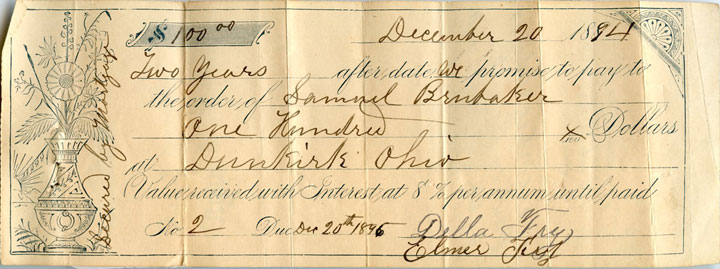 $100.00
December 20 1894
Two Years after date We promise to pay to
the order of Samuel Brubaker
One Hundred x/100 Dollars
at Dunkirk Ohio
Value received with Interest at 8 % per annum until paid
No 2 Due Dec 20th 1896 Della Fry
Elmer Fry
Secured by Mortgage